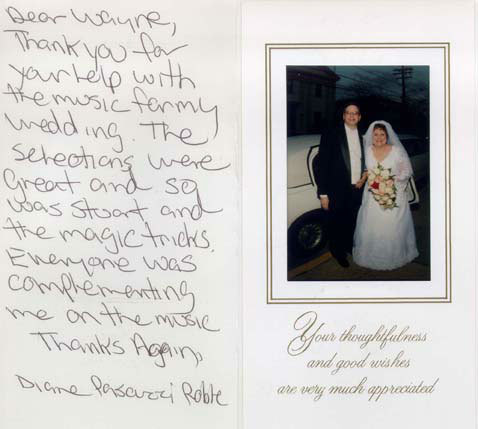 Dear Wayne,
Thank you for
your help with
the music for my
wedding. The
selections were
great and so
was Stuart and
the magic tricks.
Everyone was
complementing
me on the music
Thanks Again,
Diane Pascuzzi Roble
Your thoughtfulness
and good wishes
are very much appreciated